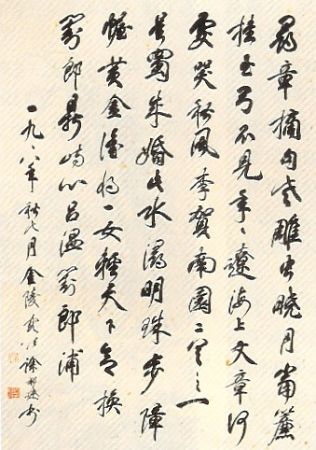 尋章摘句老雕虫晓月當簾
挂玉弓不見年々遼海上文章何
處哭秋風李賀南園之一
吴蜀成婚此水潯明珠步障
幄黄金誰将一女輕天下欲換
劉郎鼎峙心吕温劉郎浦
一九八八年秋七月金陵徐书